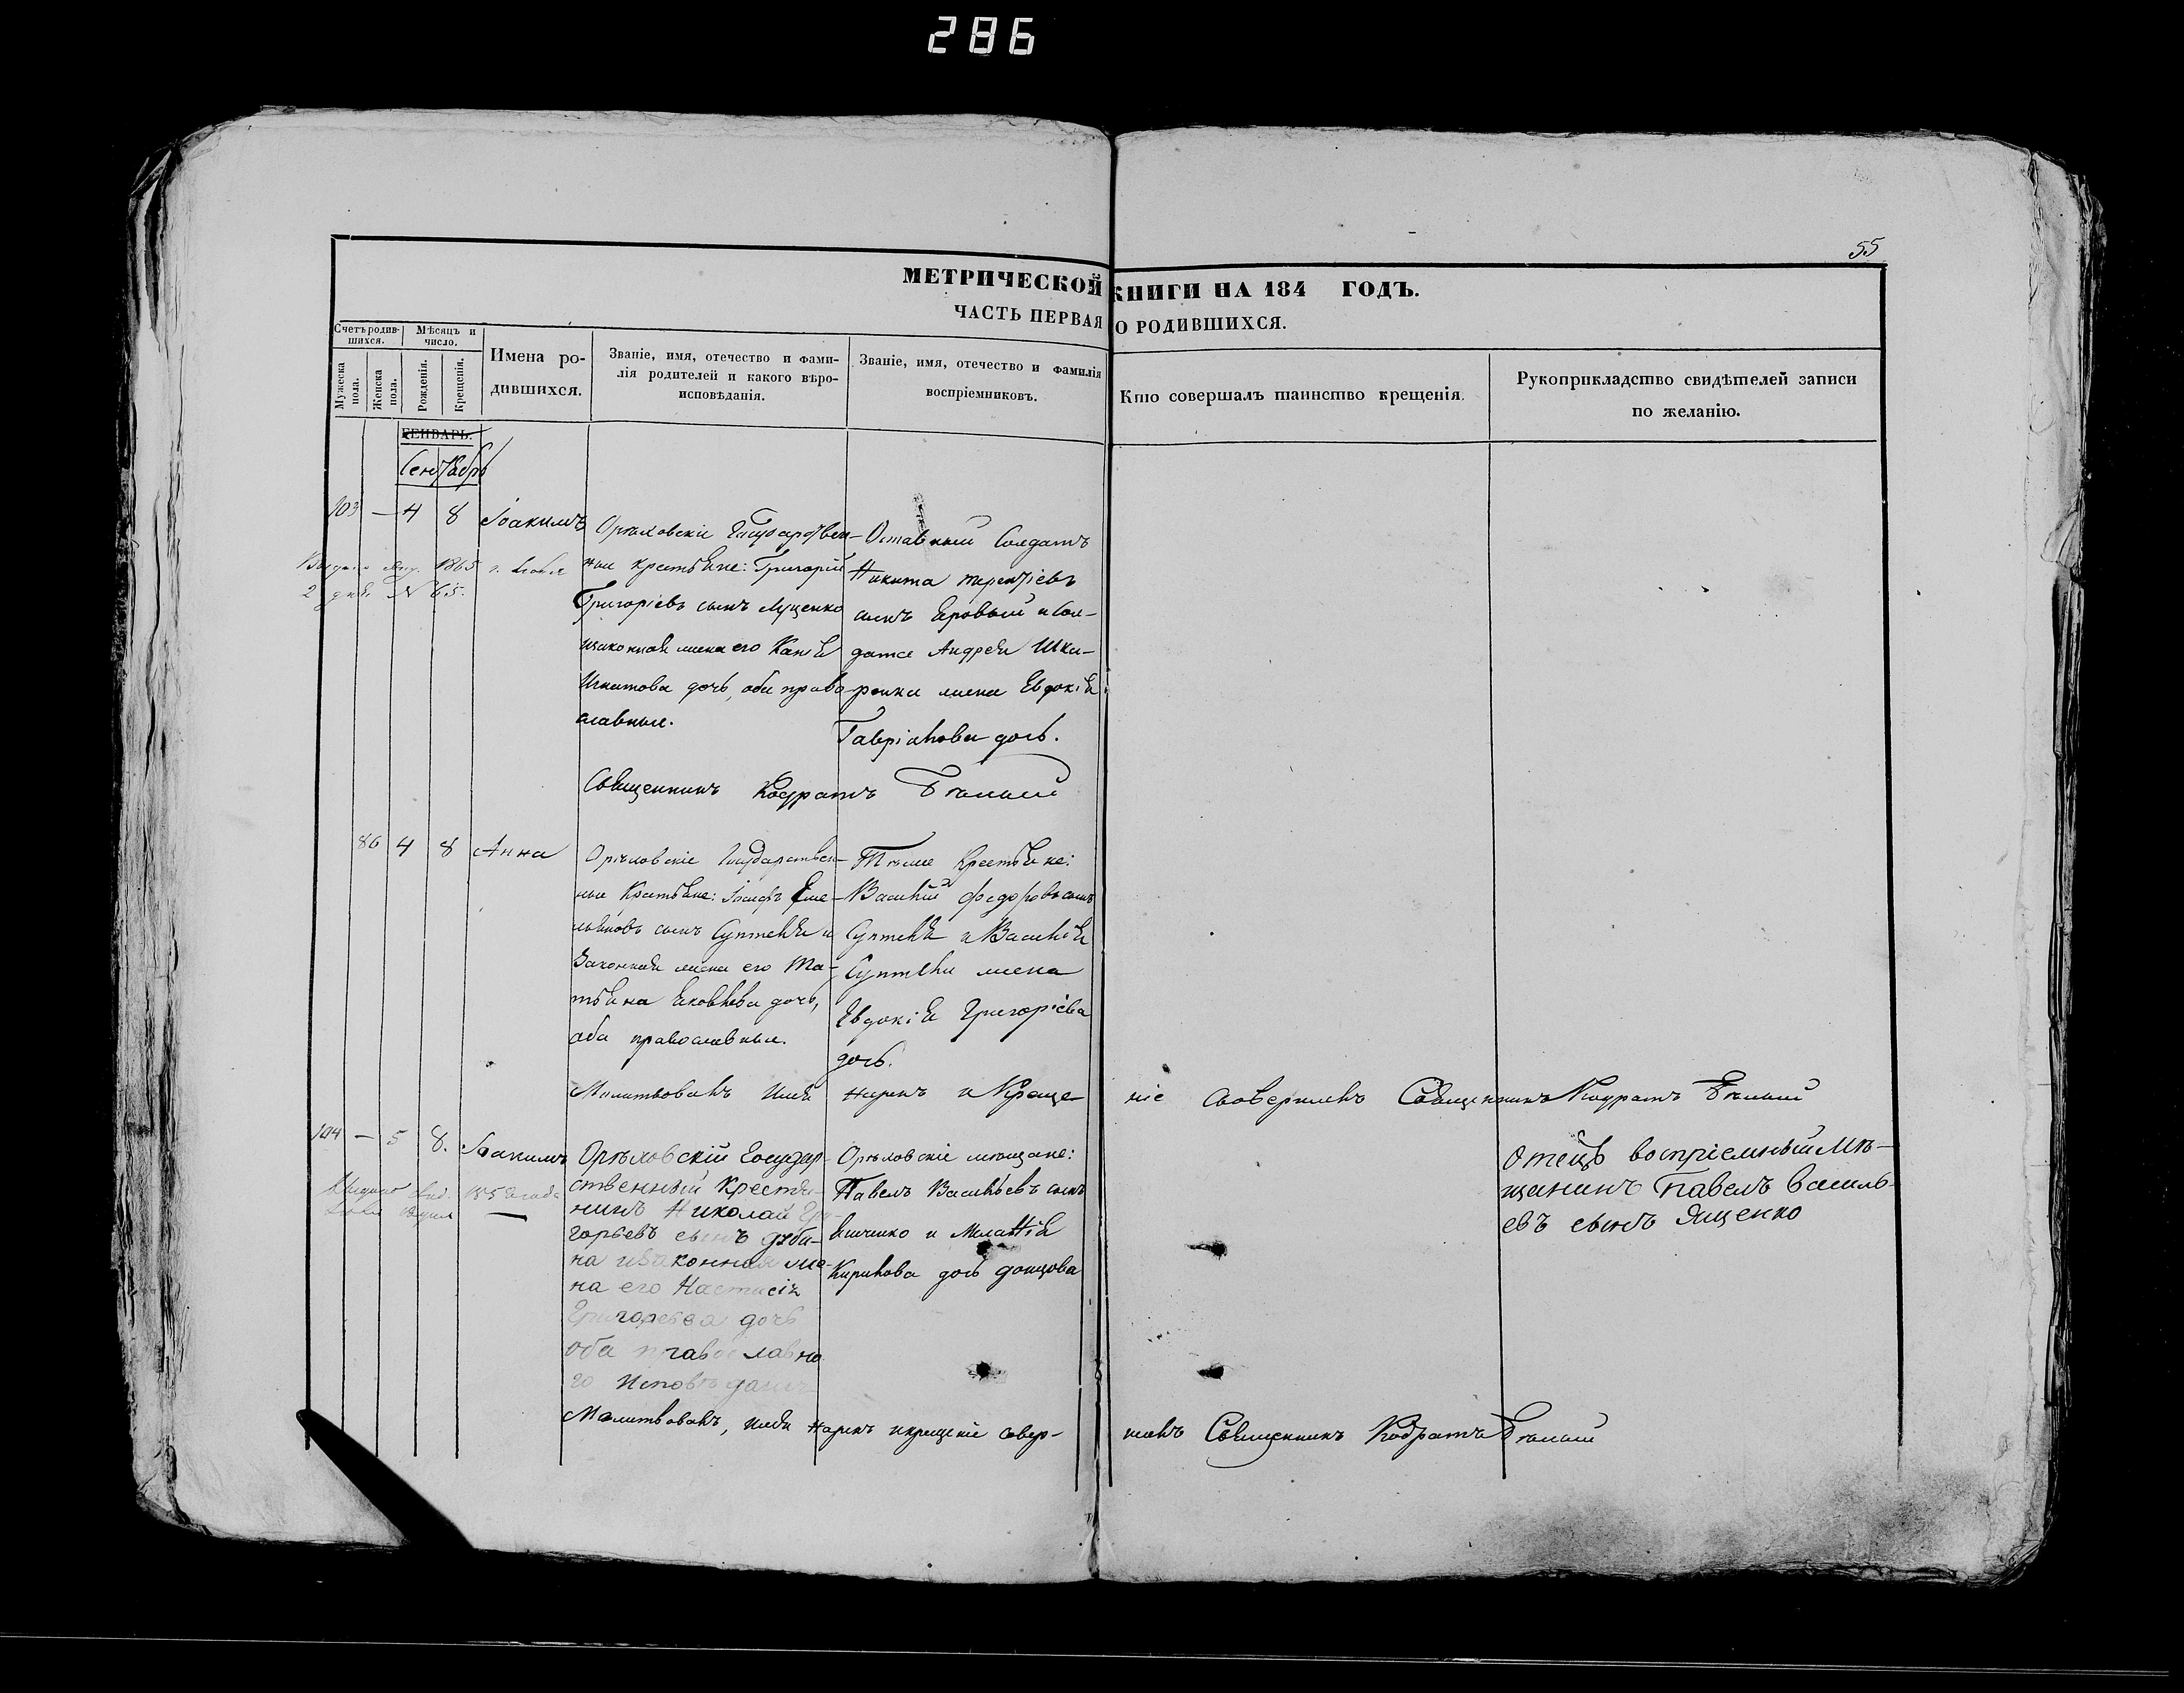 286
55
МЕТРИЧЕСКОЙ КНИГИ НА 184 ГОДЪ.
ЧАСТЬ ПЕРВАЯ О РОДИВШИХСЯ.
Счетъ родив-
шихся.
Мужеска
пола.
Женска
пола.
Мѣсяцъ и
число.
Рожденія.
Крещенія.
Имена ро-
дившихся.
Званіе, имя, отечество и фами-
лія родителей и какого вѣро-
исповѣданія.
Званіе, имя, отечество и фамилія
воспріемниковъ.
Кто совершалъ таинство крещенія.
Рукоприкладство свидѣтелей записи
по желанію.
ГЕНВАРЬ.
Сентябрь
103 — 4 8 Іоакимъ
1865 г.
2 N 65.
Орѣховскіе Государствен-
ные крестьяне: Григорій
Григоріевъ сынъ Луценко
и законная жена его
Игнатова дочь, оба право-
славные.
Отставный Солдатъ
Никита Терентіевъ
сынъ и Сол-
датсе Андрея Шка-
жена Евдокія
Гавріилова дочь.
Священникъ Кодратъ Бѣлый
86 4 8 Анна
Орѣховскіе Государствен-
ные Крестьяне: Іосифъ Еме-
льяновъ сынъ Суптеля и
Законная жена его Та-
тьяна Яковлева дочь,
оба православные.
Тѣже Крестьяне:
Василій Федоровъ сынъ
Суптеля и Василія
Суптели жена
Евдокія Григоріева
дочь.
Молитвовалъ Имя нарекъ и Креще-
ніе совершилъ Священникъ Кодратъ Бѣлый
104 — 5 8. Іоакимъ
Орѣховскій Государ-
ственный Крестья-
нинъ Николай Гри-
горьевъ сынъ Дуби-
на и законная же-
на его Настасія
Григорьева дочь
оба православно
го Исповѣданія
Орѣховскіе мѣщане:
Павелъ Васильевъ сынъ
Ященко и Меланія
Кирилова дочь Донцова
Отецъ воспріемный Мѣ-
щанинъ Павелъ Василь-
евъ сынъ Ященко
Молитвовалъ, имя нарекъ и крещеніе совер-
шилъ Священникъ Кодратъ Бѣлый